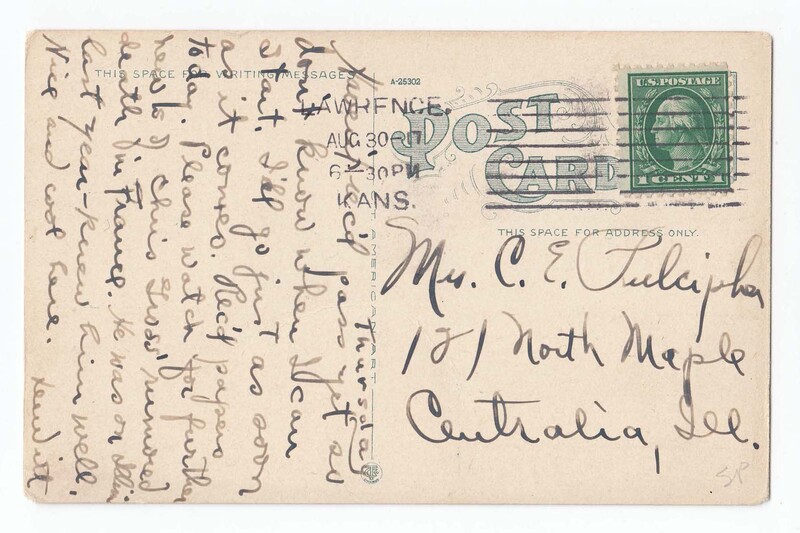 THIS SPACE FOR WRITING MESSAGES
A-25302
POST
CARD
LAWRENCE,
AUG 30-17
6-30 PM
KANS.
U.S. POSTAGE
1 CENT 1
THIS SPACE FOR ADDRESS ONLY.
AMERICAN ART
Mrs. C. E. Pulcipher
121 North Maple
Centralia, Ill.
SP
Thursday
Haven't rec'd pass yet so
don't know when I can
start. I'll go just as soon
as it comes. Rec'd papers
today. Please watch for further
news of Chris rumored
death in France. He was on Illini
last year - knew him well.
Nice and cool here. Dewitt